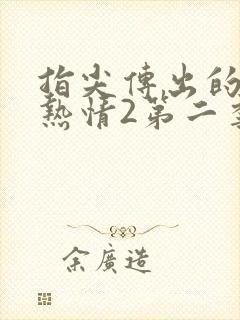 指尖傳出的
熱情2第二季
余廣造